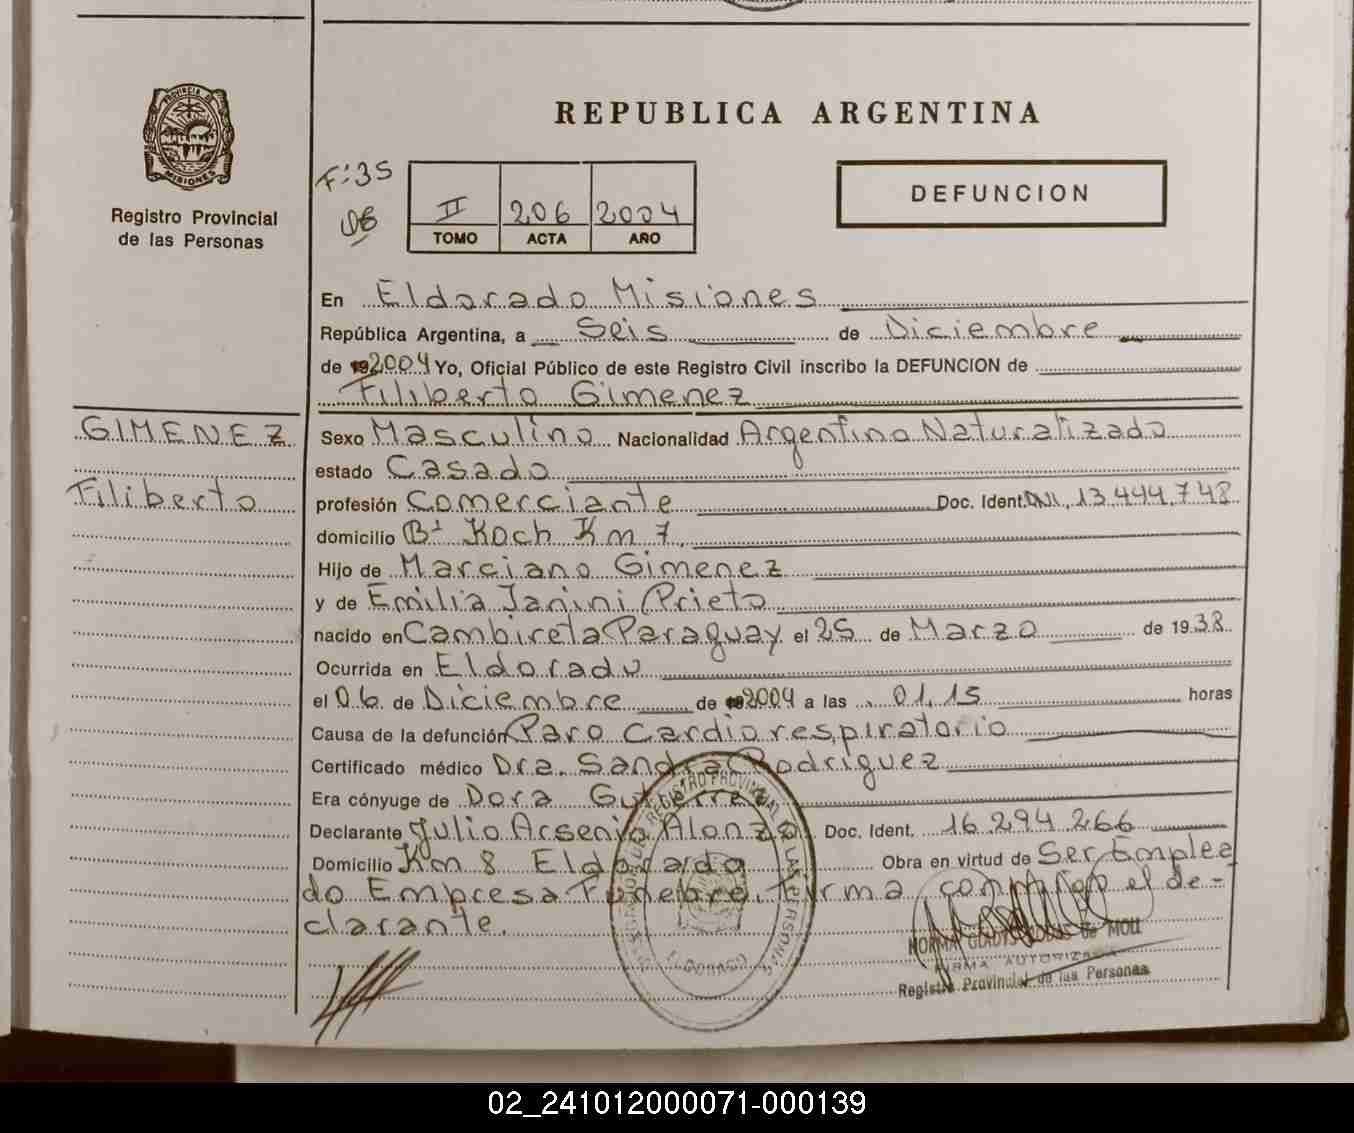 PROVINCIA DE
MISIONES
Registro Provincial
de las Personas
GIMENEZ
Filiberto
REPUBLICA ARGENTINA
Fº35
II 206 2004
TOMO ACTA AÑO
DEFUNCION
En Eldorado Misiones
República Argentina, a Seis de Diciembre
de 2004 Yo, Oficial Público de este Registro Civil inscribo la DEFUNCION de
Filiberto Gimenez
Sexo Masculino Nacionalidad Argentino Naturalizado
estado Casado
profesión Comerciante Doc. Ident. DNI. 13.444.748
domicilio Bº Koch Km 7.
Hijo de Marciano Gimenez
y de Emilia Janini Prieto
nacido en Cambireta Paraguay el 25 de Marzo de 1938
Ocurrida en Eldorado
el 06 de Diciembre de 2004 a las 01,15 horas
Causa de la defunción Paro Cardio respiratorio
Certificado médico Dra. Sandra Rodriguez
Era cónyuge de Dora Gutierrez
Declarante Julio Arsenio Alonzo Doc. Ident. 16.294.266
Domicilio Km 8 Eldorado Obra en virtud de Ser Emplea
do Empresa Funebre. Firma conmigo el de-
clarante.
REGISTRO PROVINCIAL DE LAS PERSONAS
ELDORADO
NORMA GLADYS de MOLL
FIRMA AUTORIZADA
Registro Provincial de las Personas
02_241012000071-000139